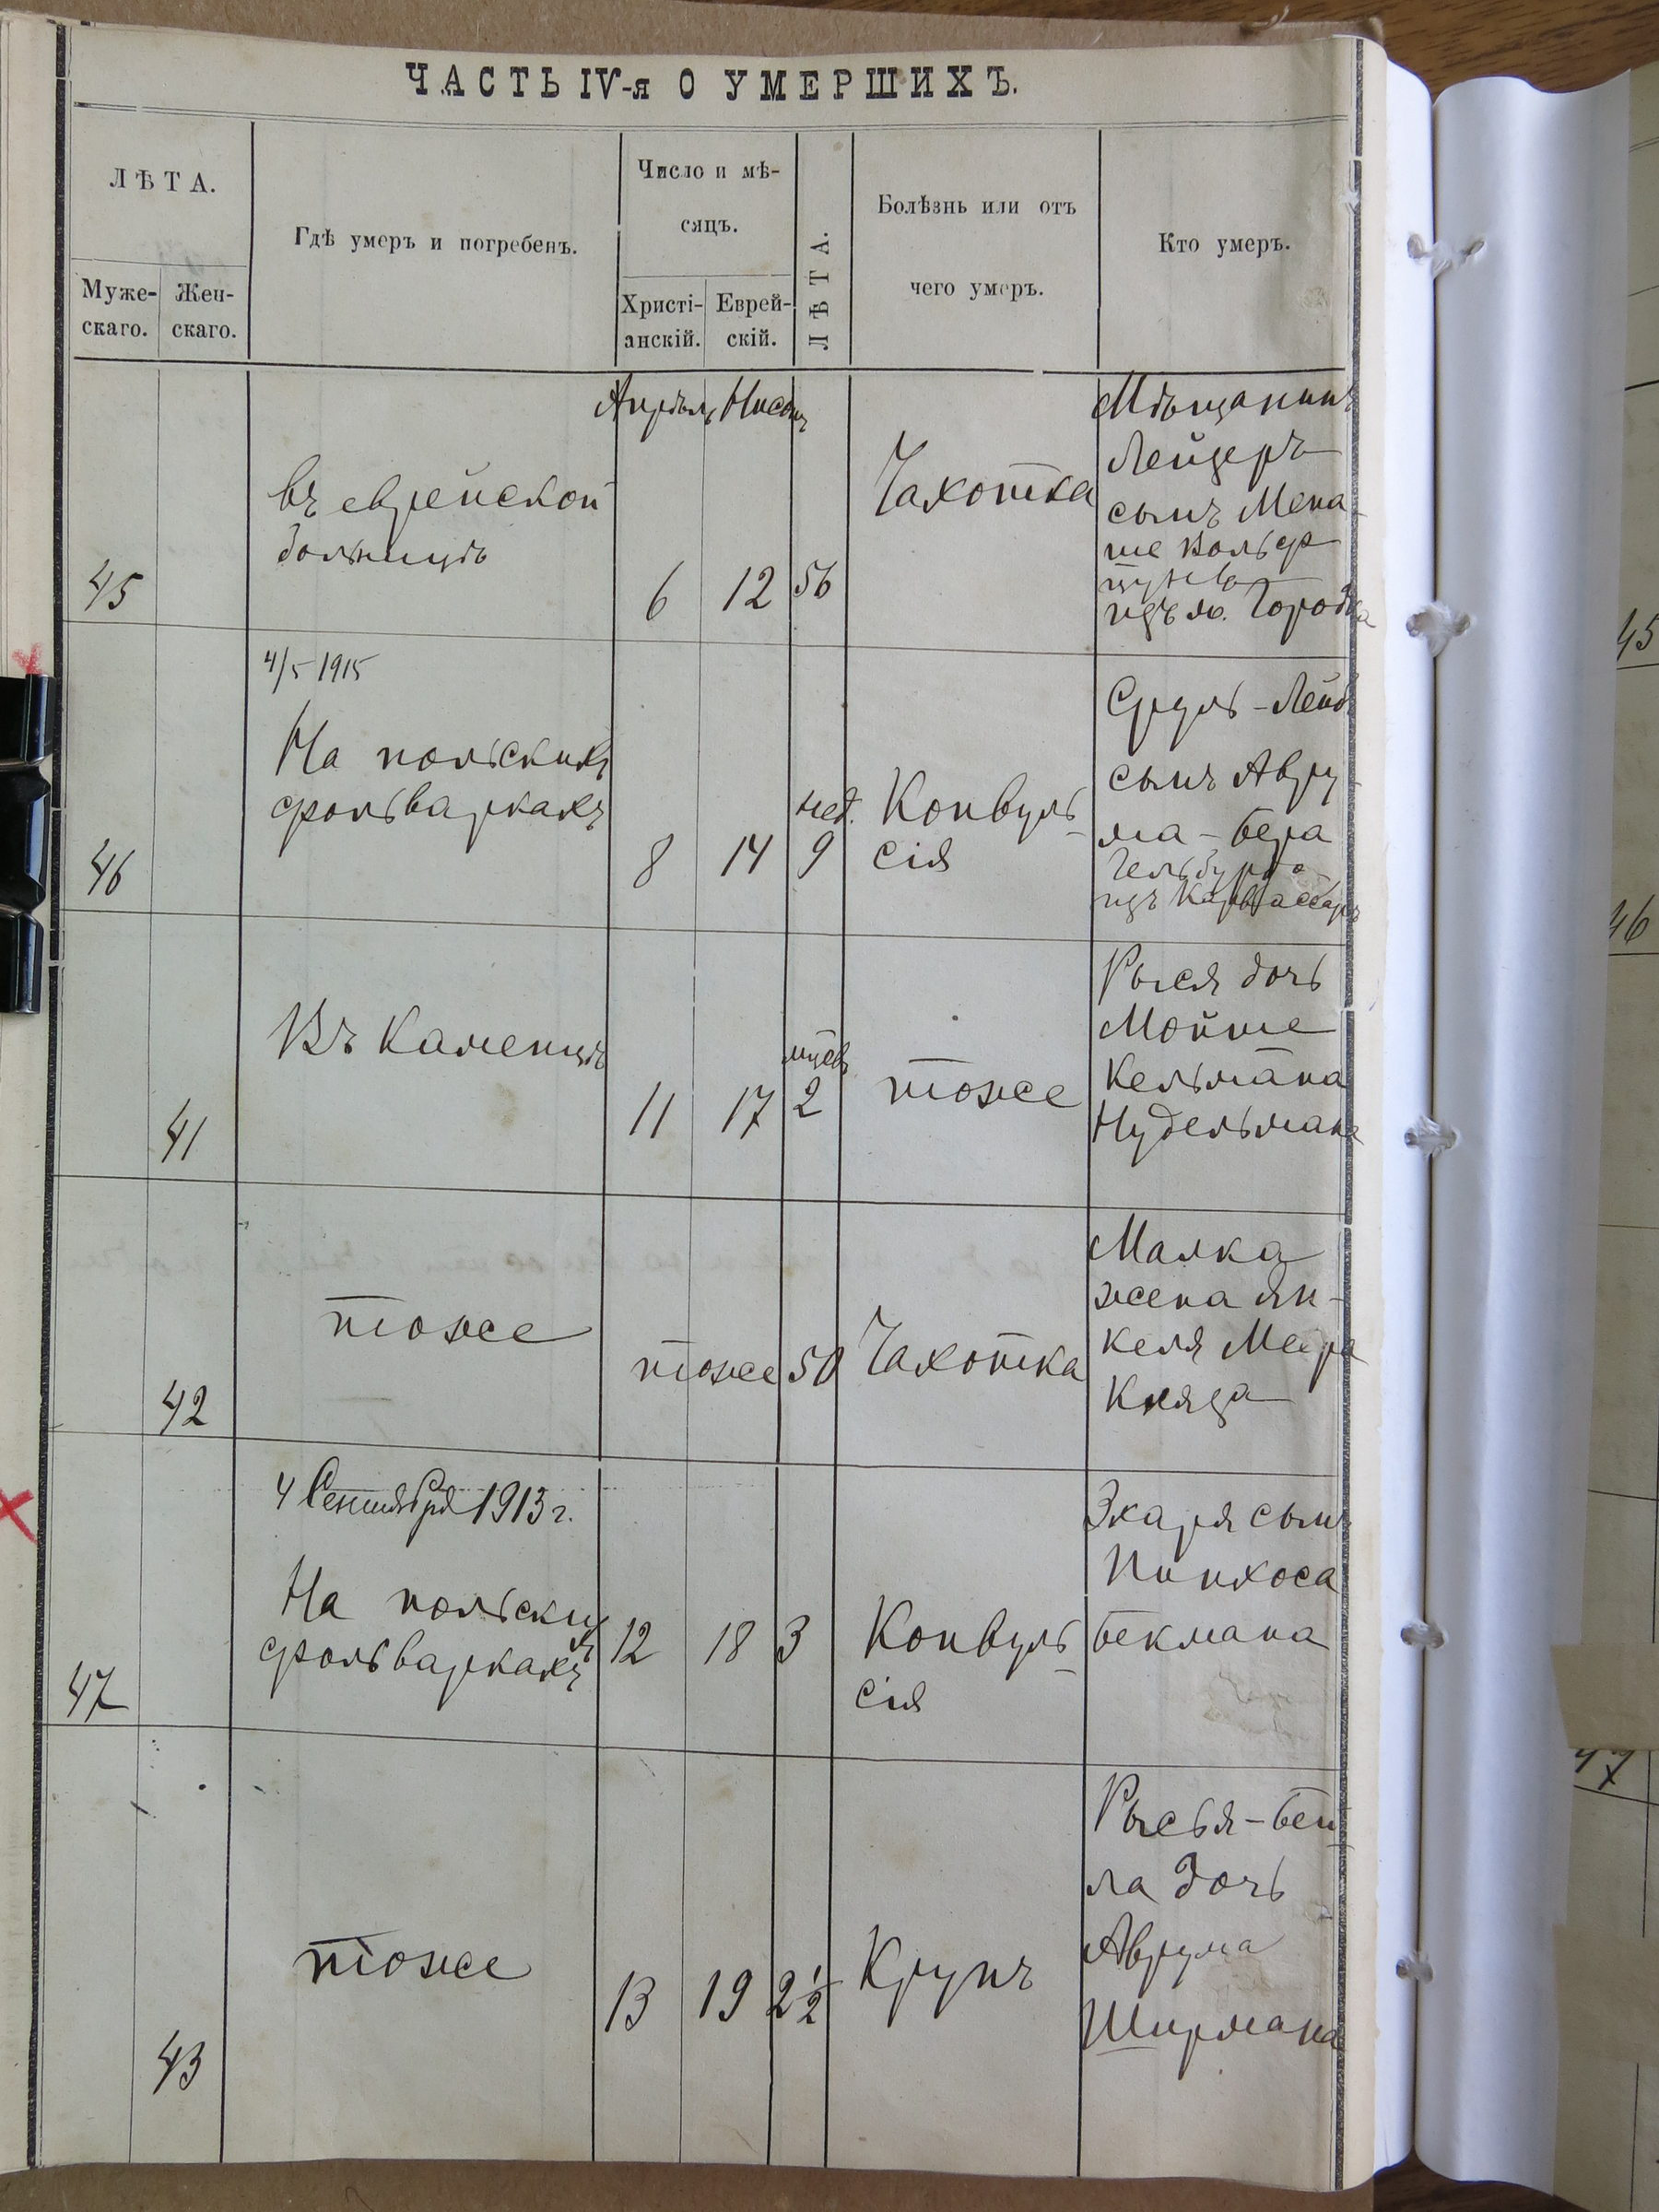 ЧАСТЬ IV-я О УМЕРШИХЪ.
ЛѢТА.
Муже-
скаго.
Жен-
скаго.
Гдѣ умеръ и погребенъ.
Число и мѣ-
сяцъ.
Христі-
анскій.
Еврей-
скій.
ЛѢТА.
Болѣзнь или отъ
чего умеръ.
Кто умеръ.
Апрѣль Нисанъ
45
въ еврейской
больницѣ
6 12 56
Чахотка
Мѣщанинъ
Лейзеръ
сынъ Мена-
ше Вольф
изъ м. Городка
4/5 1915
46
На польскихъ
фольваркахъ
8 14
нед.
9
Конвуль-
сія
Сруль-Лейб
сынъ Авру-
ма-Бера
Гельбурда
изъ Карвасаръ
41
Въ Каменцѣ
11 17
мцев
2
тоже
Рыся дочь
Мойше
Кельмана
Нудельмана
42
тоже
тоже 50
Чахотка
Малка
жена Ян-
келя Меера
Княза
4 Сентября 1913 г.
47
На польскихъ
фольваркахъ
12 18 3
Конвуль-
сія
Зкаря сынъ
Пинхоса
Бекмана
43
тоже
13 19 2½
Крупъ
Рысья-Бей-
ла дочь
Аврума
Ширмана
45
46
47